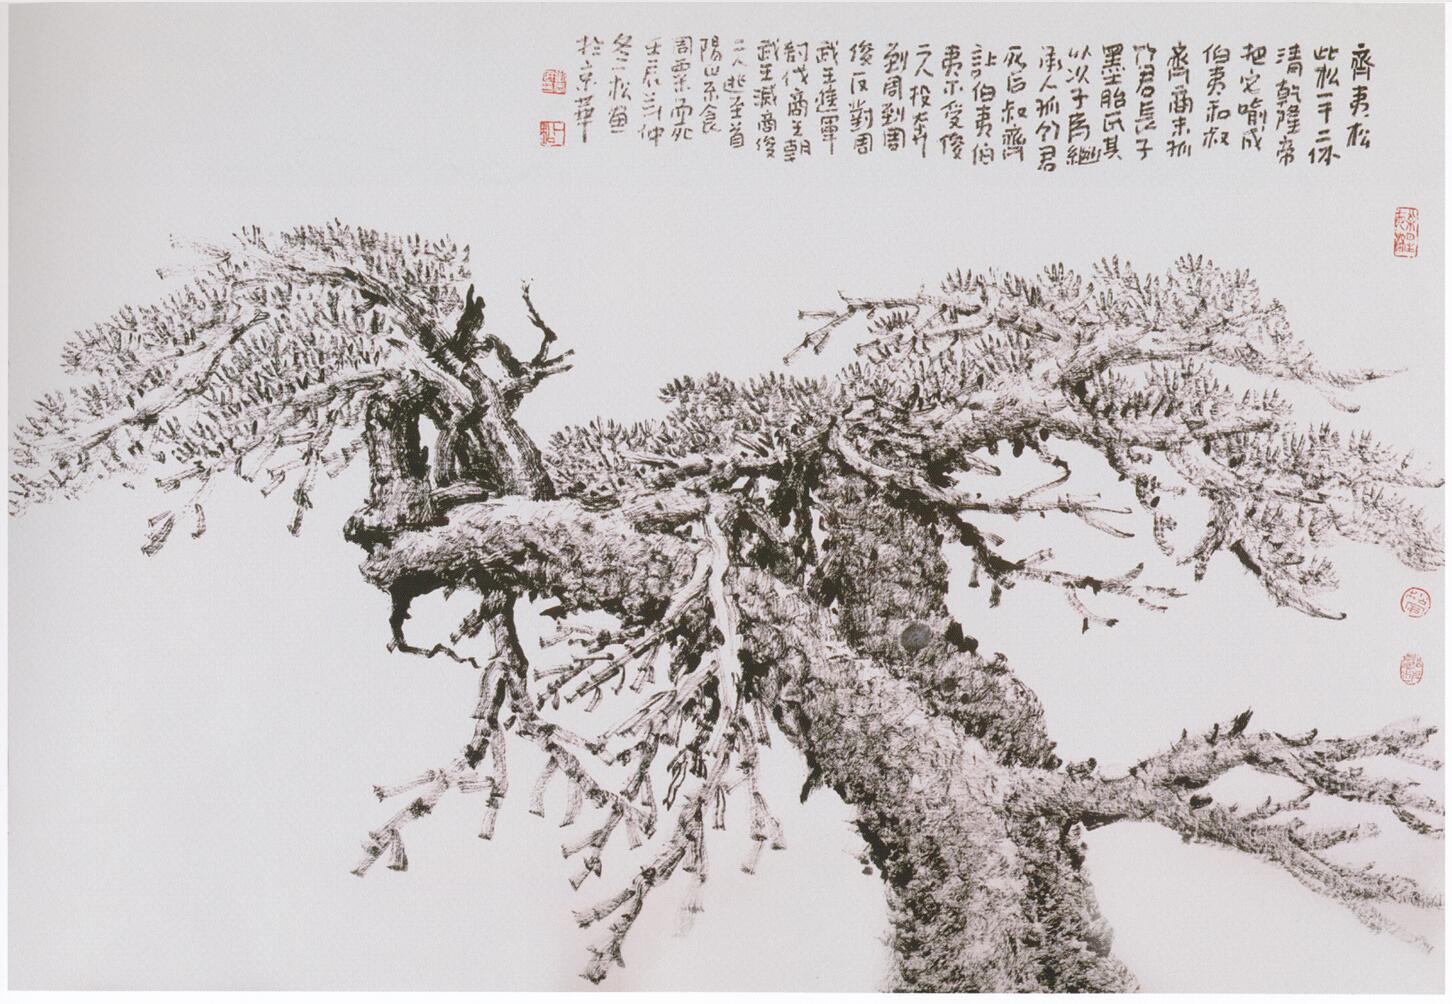 齊夷松
此松一千二保
清乾隆帝
把它喻成
伯夷和叔
齊商末孤
竹君長子
墨胎氏其
以次子为繼
承人孤竹君
死后叔齊
讓伯夷伯
夷不受後
二人投奔
到周到周
後反對周
武王進軍
討伐商王朝
武王滅商後
二人逃至首
陽山不食
周粟而死
壬辰
冬松
於京華